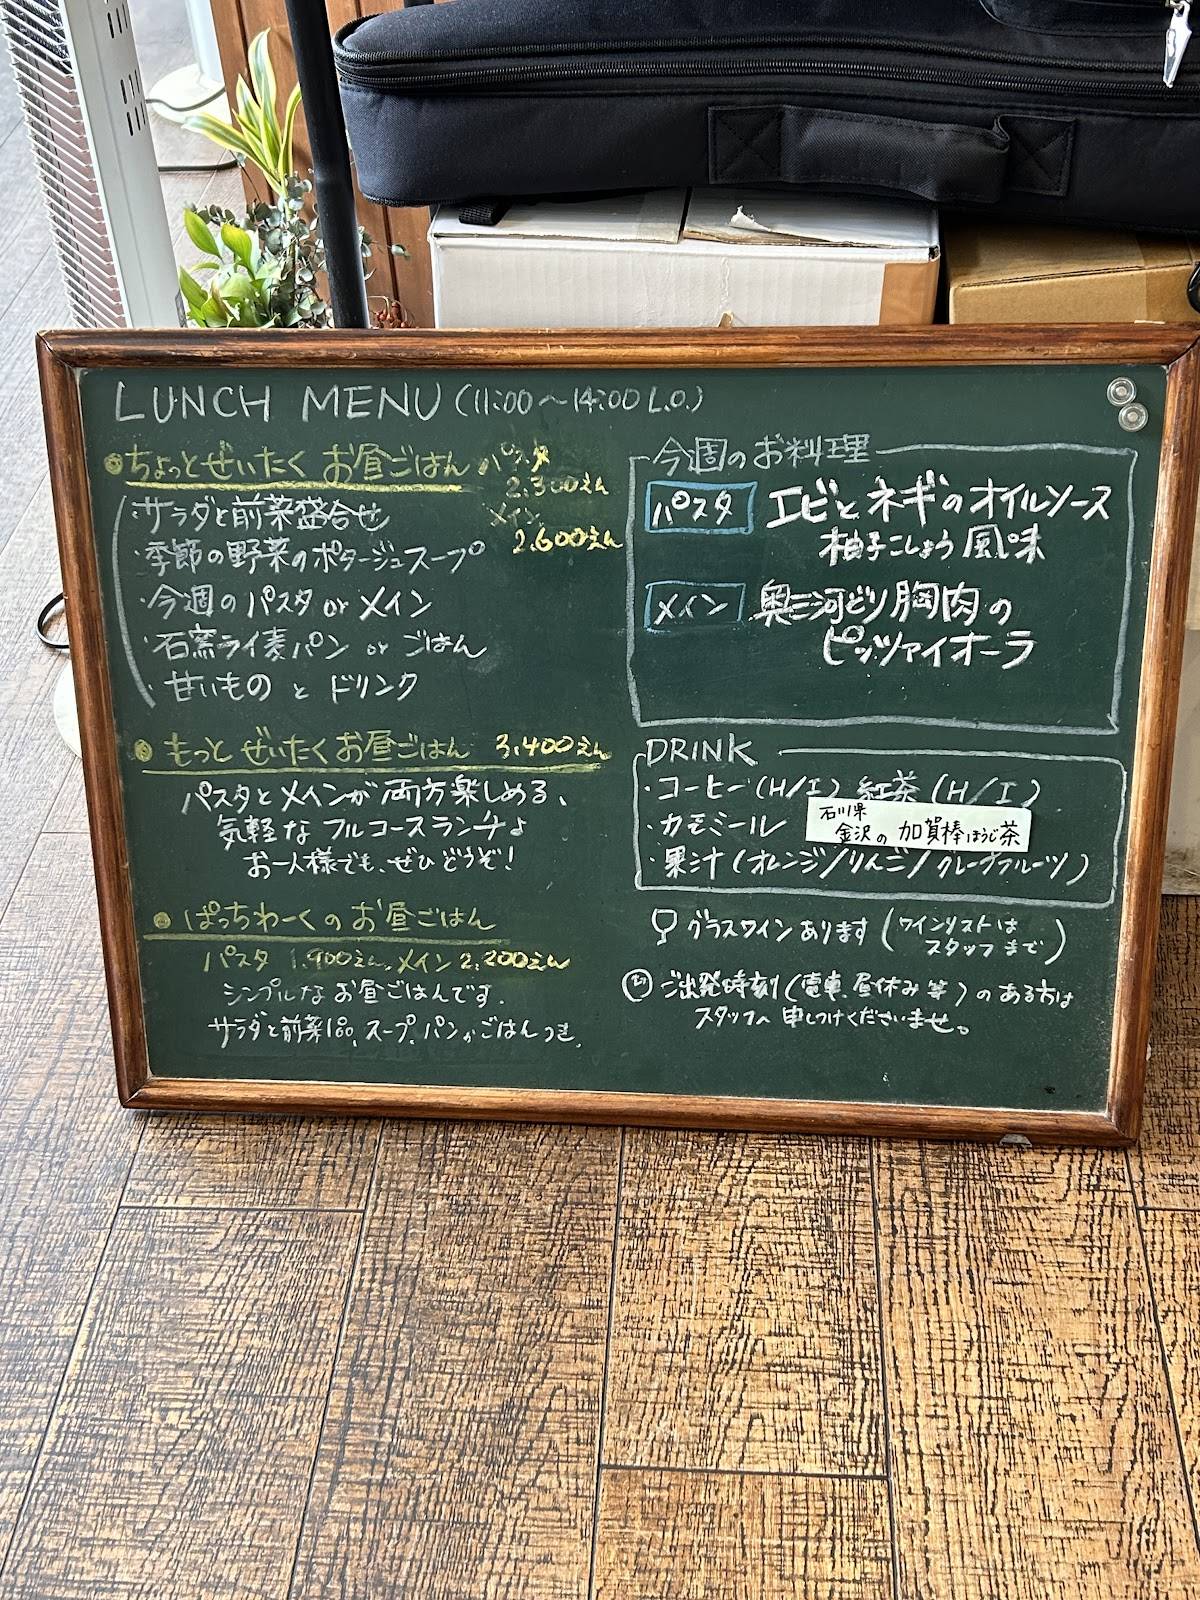 LUNCH MENU (11:00～14:00 L.O.)
ちょっとぜいたく お昼ごはん
パスタ
2,300えん
メイン
2,600えん
・サラダと前菜盛合せ
・季節の野菜のポタージュスープ
・今週のパスタ or メイン
・石窯ライ麦パン or ごはん
・甘いもの と ドリンク
もっと ぜいたくお昼ごはん 3,400えん
パスタとメインが両方楽しめる、
気軽な フルコースランチよ
お一人様でも、ぜひどうぞ!
ぱっちわーくの お昼ごはん
パスタ 1,900えん、メイン2,200えん
シンプルな お昼ごはんです.
サラダと前菜1品、スープ、パンかごはんつき.
今週のお料理
パスタ エビとネギのオイルソース
柚子こしょう風味
メイン 奥三河どり胸肉の
ピッツァイオーラ
DRINK
・コーヒー (H/I) 紅茶 (H/I)
・カモミール
石川県
金沢の 加賀棒ほうじ茶
・果汁 (オレンジ/りんご/グレープフルーツ)
グラスワインあります (ワインリストは
スタッフまで)
ご出発時刻 (電車、昼休み等) のある方は
スタッフへ 申しつけくださいませ。